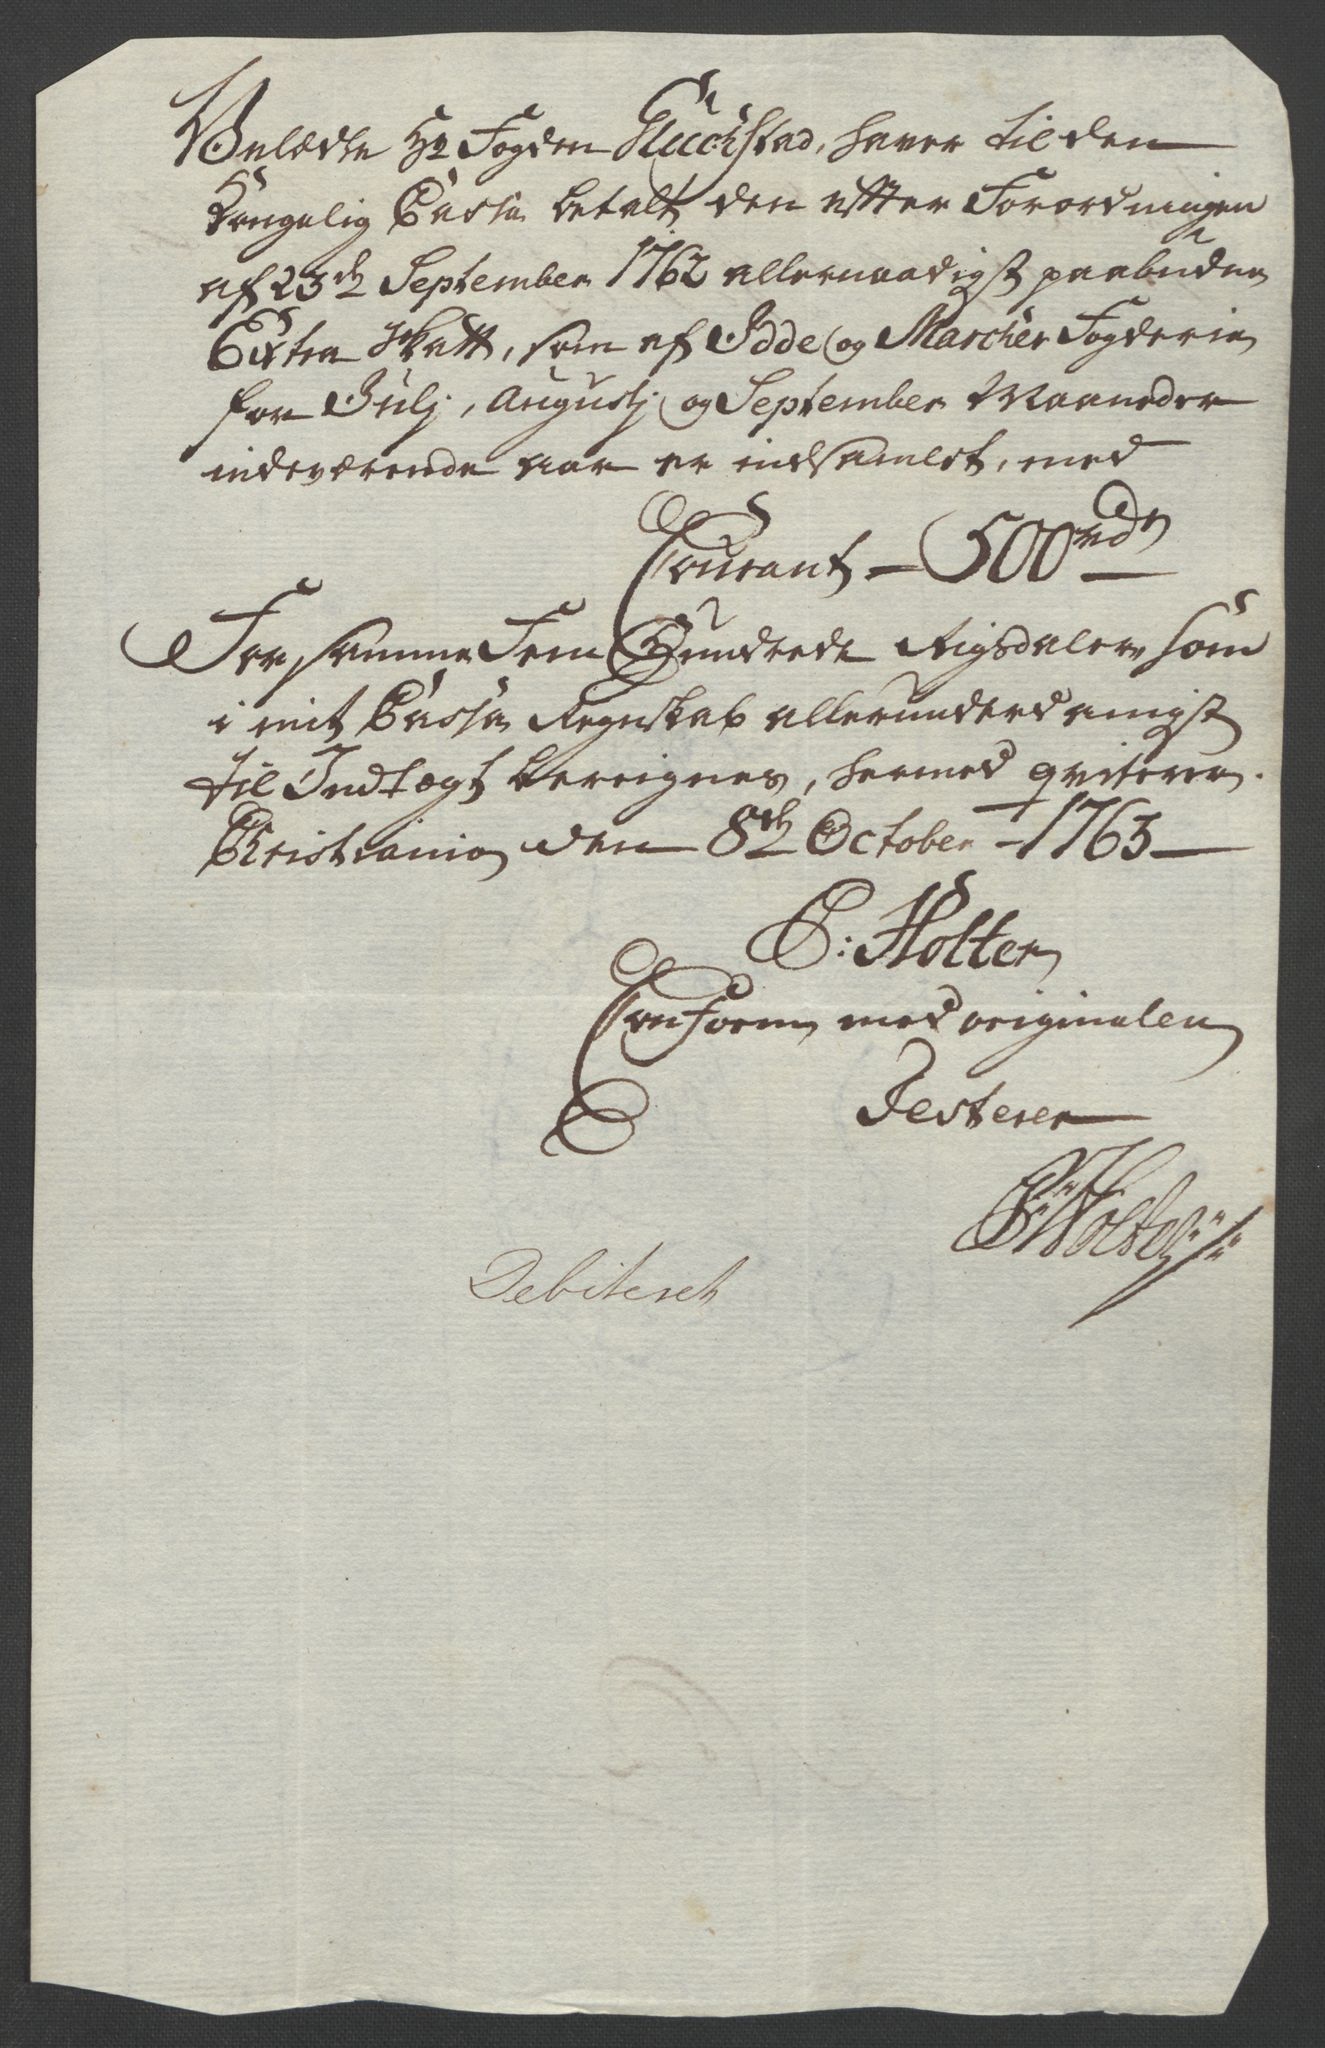 Velædle Hr Fogden Glückstad, haver til den
Kongelig Cassa betalt den efter Forordningen
af 23de September 1762 allernaadigst paabudne
Extra Skatt, som af Idde og Marcher Fogderie
for Julj, Augustj og September Maaneder
indeværende aar er indsamlet, med
Courant - 500rd
For samme Fem Hundrede Rigsdaler, som
i mit Cassa Regnskab allerunderdanigst
til Indtægt bereignes, hermed qviterer.
Christiania den 8de October 1763
C: Holter
Conform med originalen
Testerer
Debiteret